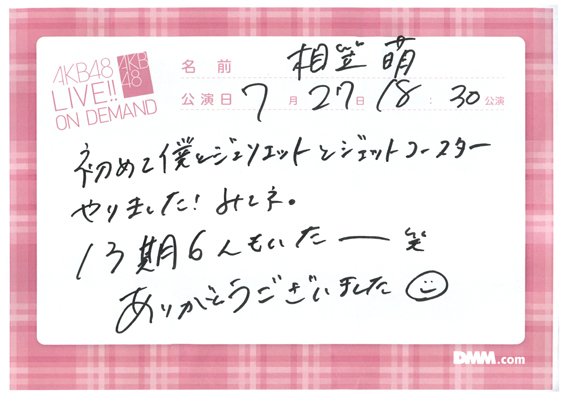 AKB48
LIVE!!
ON DEMAND
AKB
48
名前 相笠萌
公演日 7月27日 18:30公演
初めて僕とジュリエットとジェットコースター
やりました！みてネ。
13期6人もいたー 笑
ありがとうございました
DMM.com